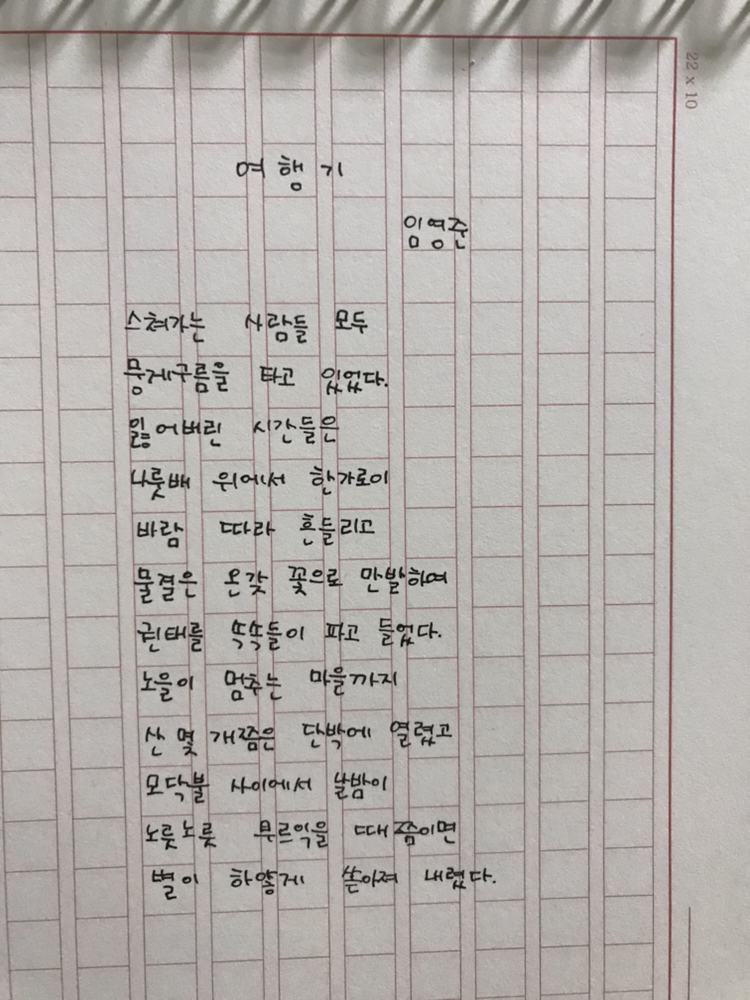 여행기
임영준
스쳐가는 사람들 모두
뭉게구름을 타고 있었다.
잃어버린 시간들은
나룻배 위에서 한가로이
바람 따라 흔들리고
물결은 온갖 꽃으로 만발하여
권태를 쏙쏙들이 파고 들었다.
노을이 멈추는 마을까지
산 몇 개쯤은 단박에 열렸고
모닥불 사이에서 날밤이
노릇노릇 무르익을 때쯤이면
별이 하얗게 쏟아져 내렸다.
22 x 10